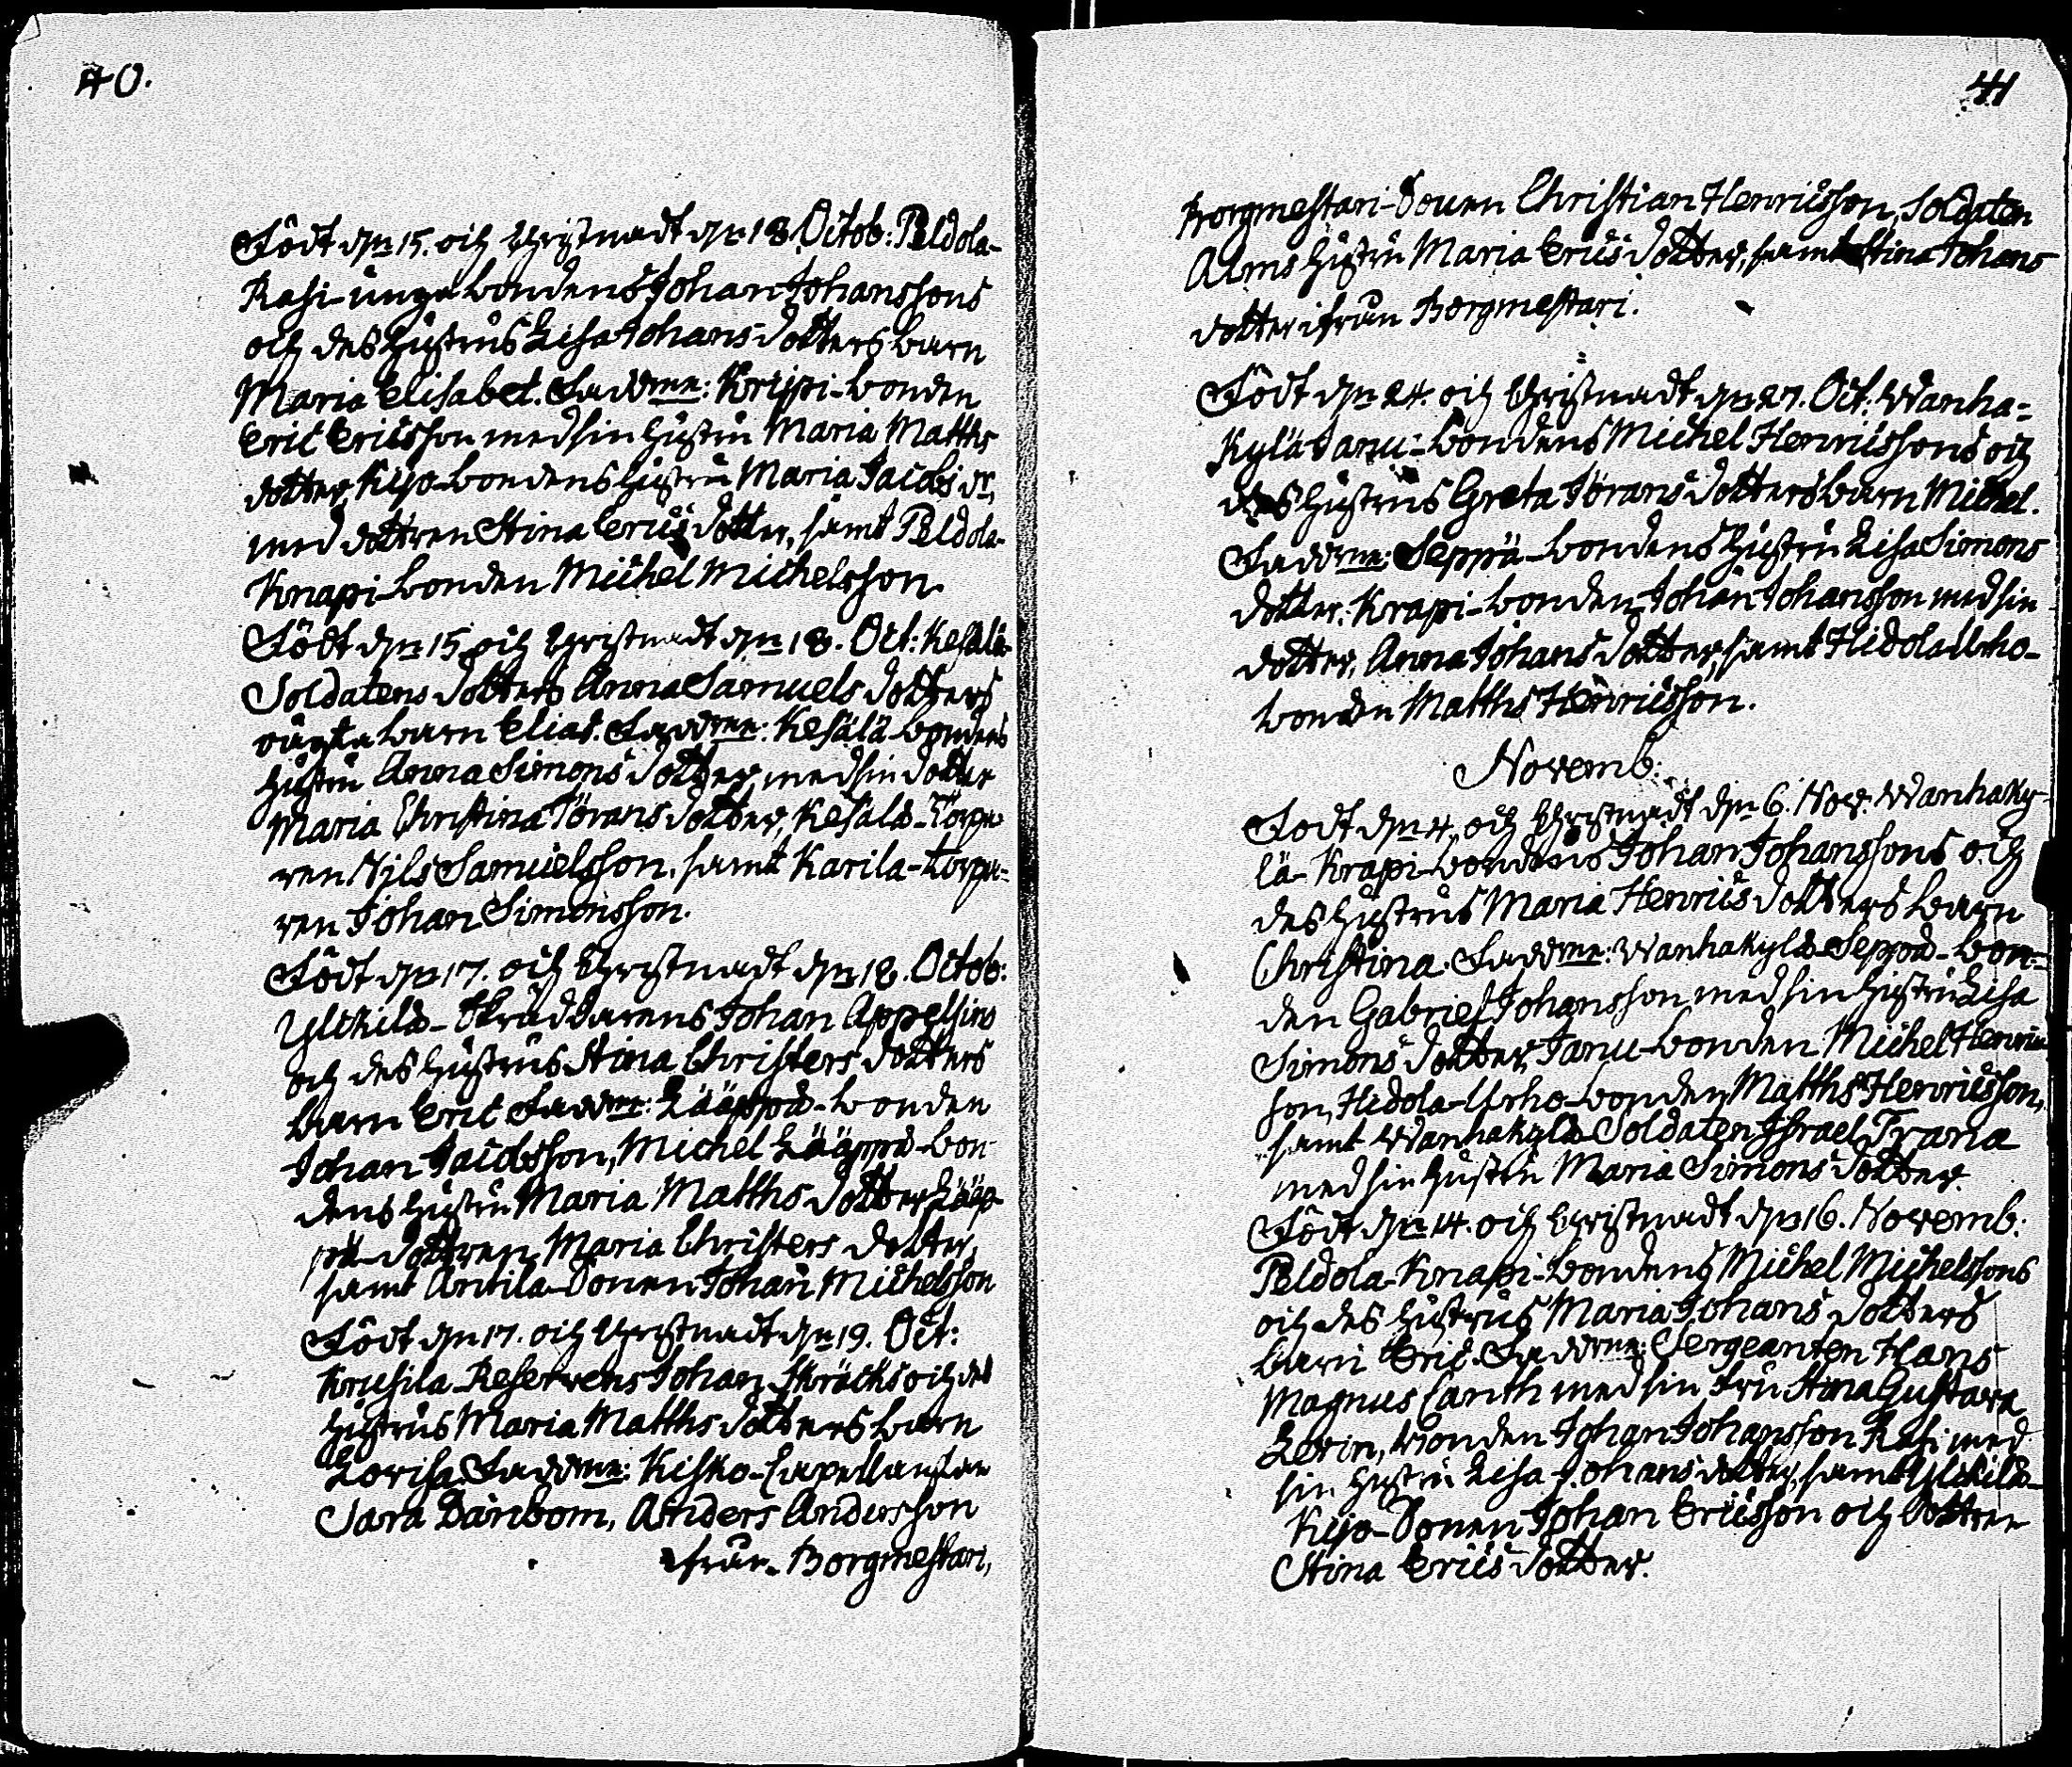 40.
Född d. 15. och Christnadt d. 18 Octob: Peldola-
Rasi-unga bondens Johan Johanssons
och des hustrus Lisa Johans dotters barn
Maria Elisabet. Faddrne: Krippi-bonden
Eric Ericsson med sin hustru Maria Matths
dotter, Kijo-bondens hustru Maria Jacobs dr,
med dottren Stina Erics dotter, samt Peldola-
Knapi-bonden Michel Michelsson.
Född d. 15. och Christnadt d. 18. Oct: Kesälä-
Soldatens dotters Anna Samuels dotters
oägta barn Elias. Faddrne: Kesälä-bondens
hustru Anna Simons dotter med sin dotter
Maria Christina Jörans dotter, Kesälä-Torpa-
ren Nils Samuelsson. samt Karila-torpa-
ren Johan Simonsson.
Född d. 17. och Christnadt d. 18. Octob:
Ylikilä-Skräddarens Johan Appelsins
och des hustrus Stina Christers dotters
barn Eric Faddrne: Lääppä-bonden
Johan Jacobsson, Michel Lääppä-bon-
dens hustru Maria Matths dotter, Lääp-
pä-dottren Maria Christers dotter,
samt Antila-Sonen Johan Michelsson
Född d. 17. och Christnadt d. 19. Oct:
Krusila-Reservens Johan Skräcks och des
hustrus Maria Matths dotters barn
Lovisa. Faddrne: Kisko-Capellanskan
Sara Danbom, Anders Andersson
från Borgmestari,
41
Borgmestari-Sonen Christian Henricsson, Soldaten
Alms hustru Maria Erics dotter, samt Stina Johans
dotter ifrån Borgmestari.
Född d. 24. och Christnadt d. 27. Oct: Wanha-
kylä Janu-bondens Michel Henricssons och
des hustrus Greta Jörans dotters barn Michel.
Faddrne: Seppä-bondens hustru Lisa Simons
dotter: Krapi-bonden Johan Johansson med sin
dotter, Anna Johans dotter, samt Hidola Urho-
bonden Matths Henricsson.
Novemb:
Född d. 4. och Christnadt d. 6. Nov. Wanhaky-
lä-Krapi-bondens Johan Johanssons och
des hustrus Maria Henrics dotters barn
Christina. Faddrne: Wanhakylä-Seppä-bon-
den Gabriel Johansson med sin hustru Lisa
Simons dotter, Janu-bonden Michel Henrics
son, Hidola-Urho-bonden Matths Henricsson,
samt Wanhakylä-Soldaten Israel Trana
med sin hustru Maria Simons dotter.
Född d. 14. och Christnadt d. 16. Novemb:
Peldola-Knapi-bondens Michel Michelssons
och des hustrus Maria Johans dotters
barn Eric. Faddrne: Sergeanten Hans
Magnus Canth med sin Fru Stina Gustava
Levin, bonden Johan Johansson Rasi med
sin hustru Lisa Johans dotter, samt Ylikilä-
Kijo-Sonen Johan Ericsson och dottren
Stina Erics dotter.